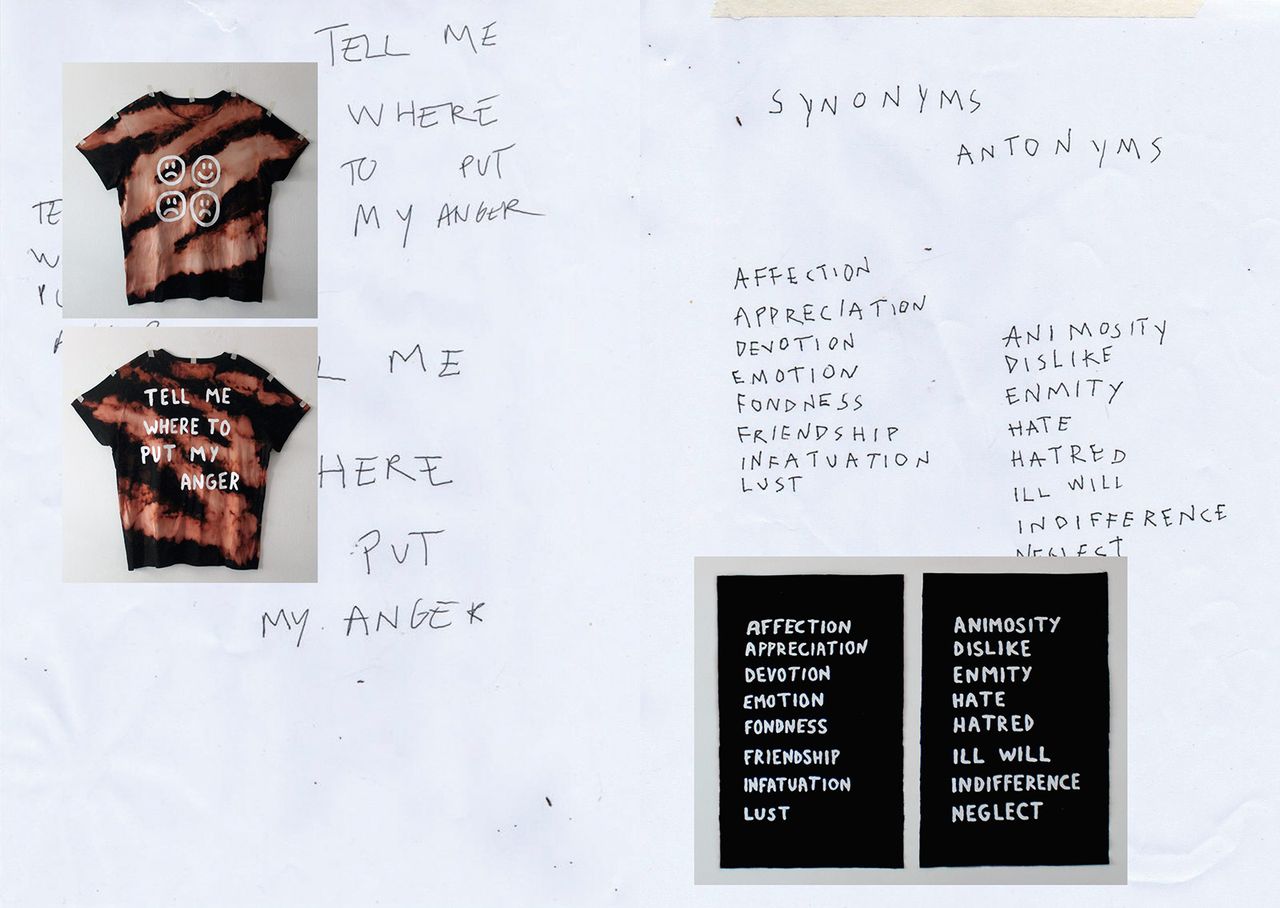 TELL ME
WHERE
TO PUT
MY ANGER
TE
W
ME
HERE
PUT
MY. ANGER
TELL ME
WHERE TO
PUT MY
ANGER
SYNONYMS
ANTONYMS
AFFECTION
APPRECIATION
DEVOTION
EMOTION
FONDNESS
FRIENDSHIP
INFATUATION
LUST
ANIMOSITY
DISLIKE
ENMITY
HATE
HATRED
ILL WILL
INDIFFERENCE
NEGLECT
AFFECTION
APPRECIATION
DEVOTION
EMOTION
FONDNESS
FRIENDSHIP
INFATUATION
LUST
ANIMOSITY
DISLIKE
ENMITY
HATE
HATRED
ILL WILL
INDIFFERENCE
NEGLECT